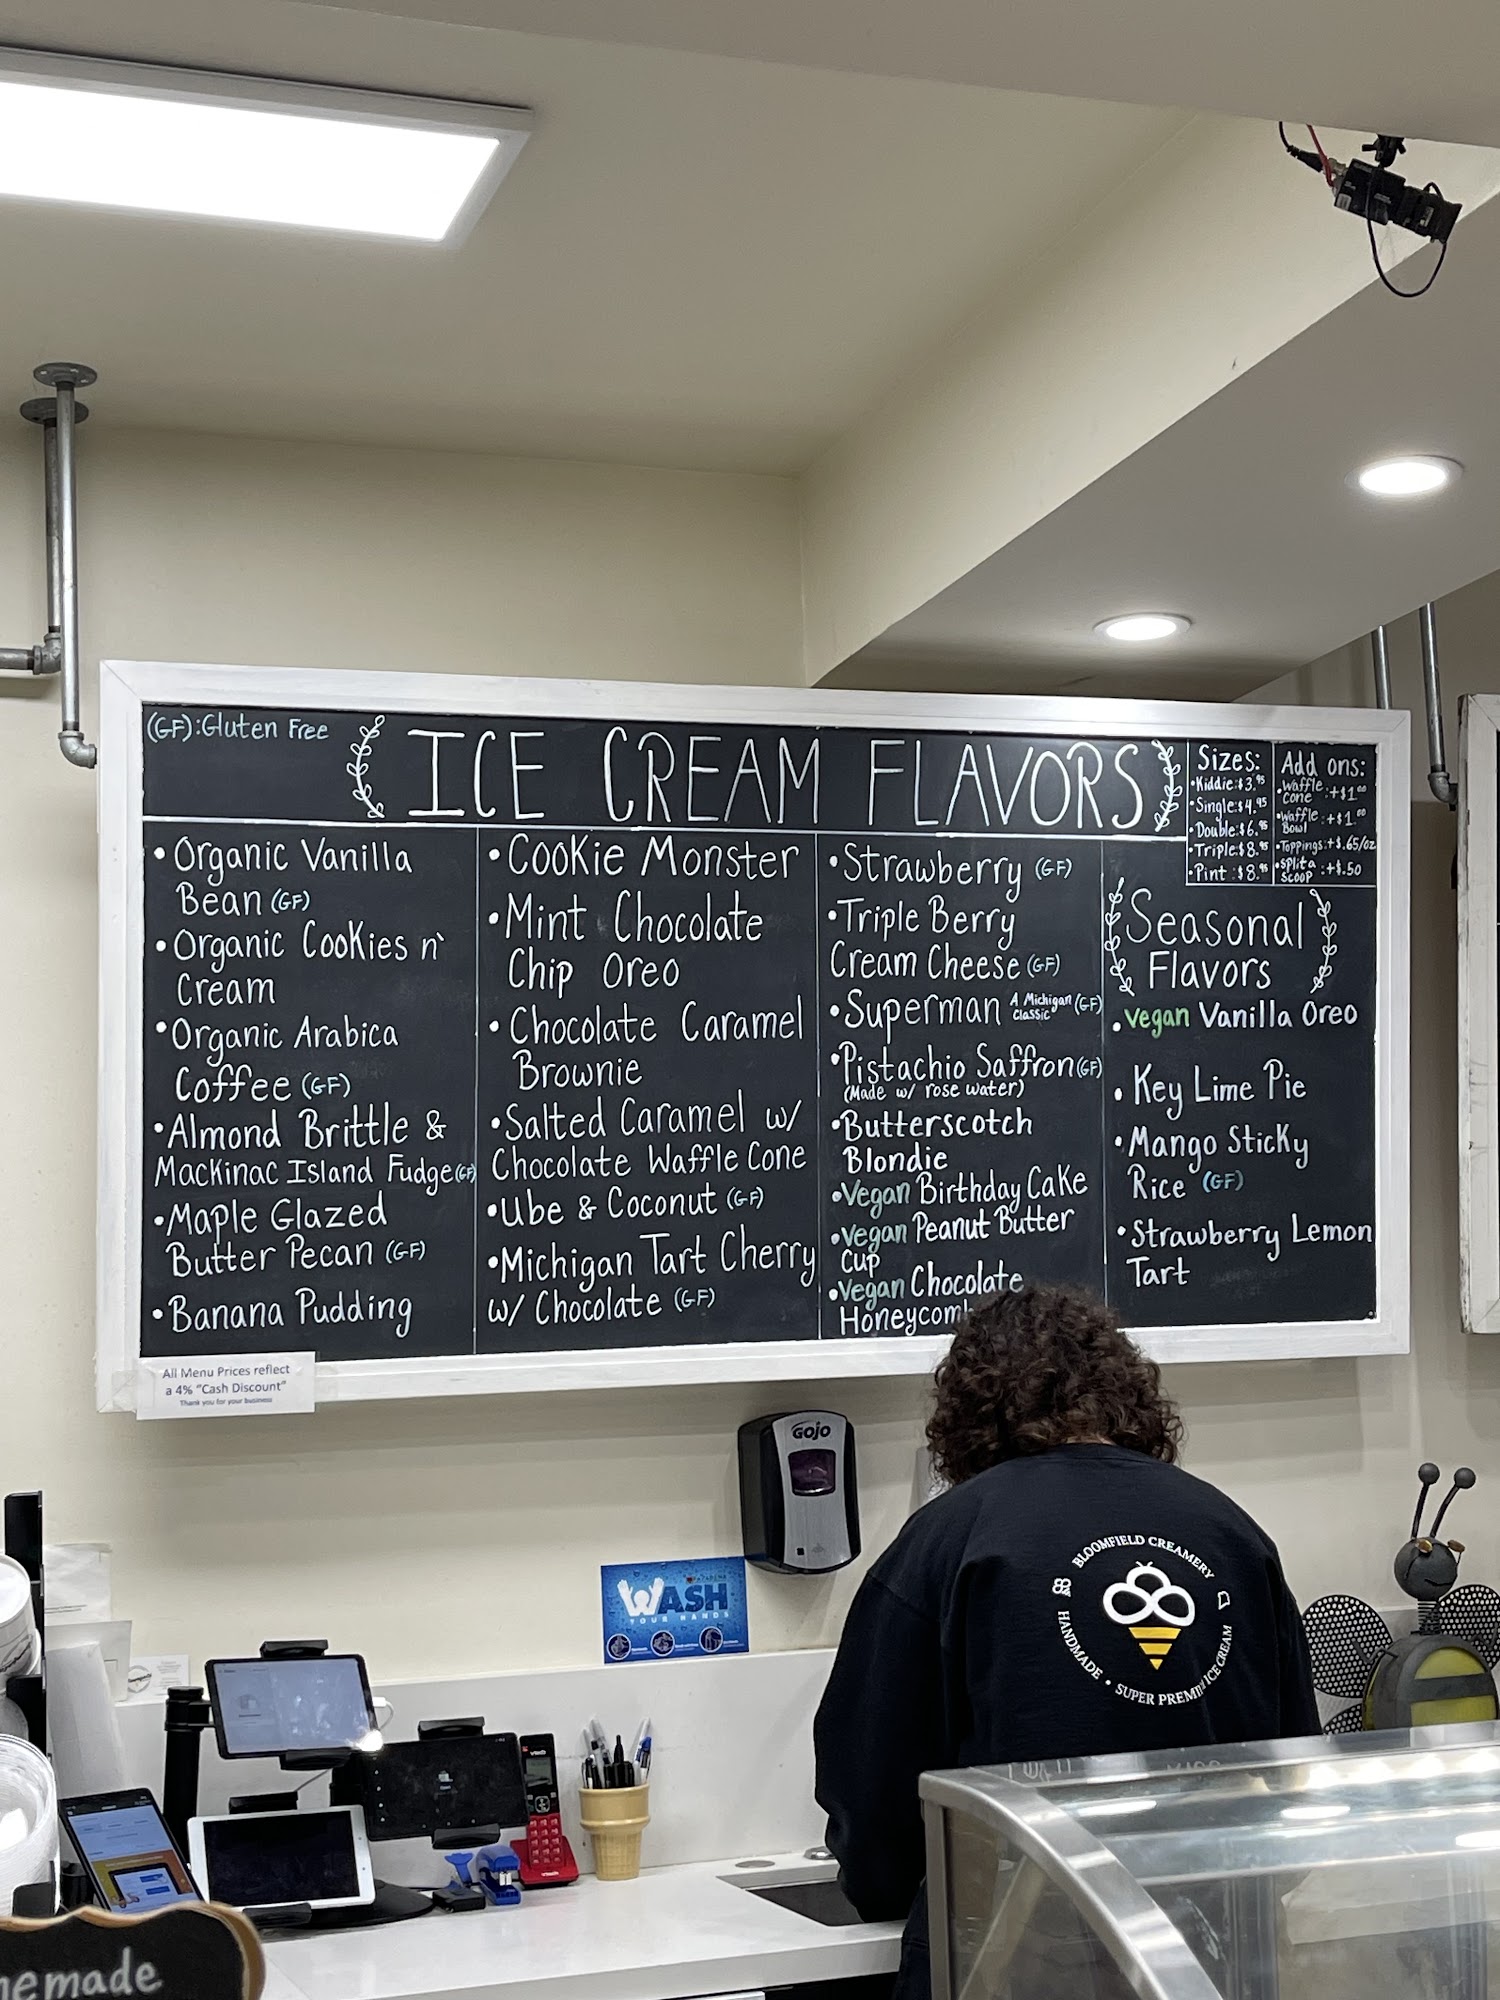 (GF):Gluten Free
ICE CREAM FLAVORS
Sizes:
•Kiddie:$3.95
•Single:$4.95
•Double:$6.95
•Triple:$8.95
•Pint :$8.95
Add ons:
•Waffle
Cone :+$1.00
•Waffle
Bowl :+$1.00
•Toppings:+$.65/oz
•Split a
Scoop :+$.50
•Organic Vanilla
Bean (GF)
•Organic Cookies n`
Cream
•Organic Arabica
Coffee (GF)
•Almond Brittle &
Mackinac Island Fudge(GF)
•Maple Glazed
Butter Pecan (GF)
•Banana Pudding
•Cookie Monster
•Mint Chocolate
Chip Oreo
•Chocolate Caramel
Brownie
•Salted Caramel w/
Chocolate Waffle Cone
•Ube & Coconut (GF)
•Michigan Tart Cherry
w/ Chocolate (GF)
•Strawberry (GF)
•Triple Berry
Cream Cheese (GF)
•Superman A Michigan (GF)
Classic
•Pistachio Saffron(GF)
(Made w/ rose water)
•Butterscotch
Blondie
•Vegan Birthday Cake
•Vegan Peanut Butter
Cup
•Vegan Chocolate
Honeycomb
Seasonal
Flavors
•Vegan Vanilla Oreo
•Key Lime Pie
•Mango Sticky
Rice (GF)
•Strawberry Lemon
Tart
All Menu Prices reflect
a 4% "Cash Discount"
Thank you for your business
GOJO
WASH
YOUR HANDS
BLOOMFIELD CREAMERY
HANDMADE • SUPER PREMIUM ICE CREAM
vtech
vtech
nemade